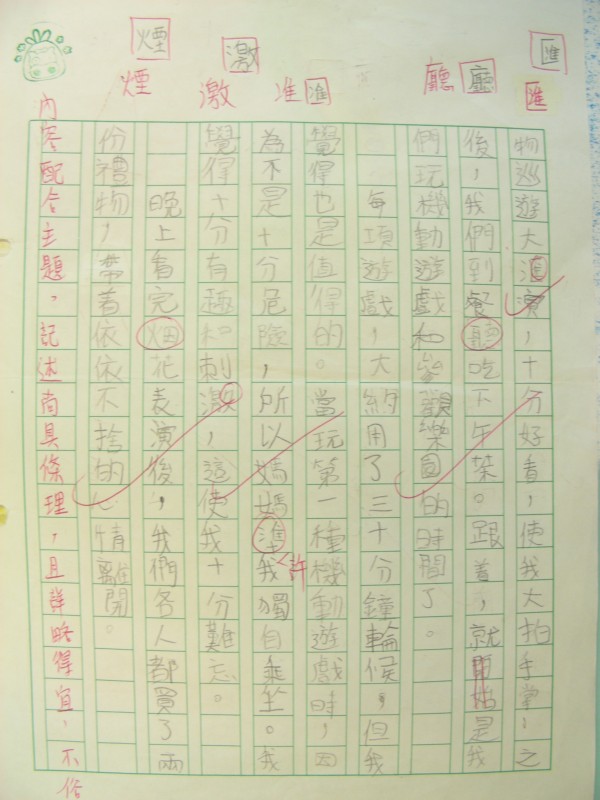 匯
匯
廳 廳
准 匯
激
激
煙
煙
物巡遊大滙演，十分好看，使我大拍手掌；之
後，我們到餐聽吃下午茶。跟着，就開始是我
們玩機動遊戲和參觀樂園的時間了。
每項遊戲，大約用了三十分鐘輪候，但我
覺得也是值得的。當玩第一種機動遊戲時，因
為不是十分危險，所以媽媽準許我獨自乘坐。我
覺得十分有趣和刺激，這使我十分難忘。
晚上看完烟花表演後，我們各人都買了兩
份禮物，帶着依依不捨的心情離開。
內容配合主題，記述尚具條理，且詳略得宜，不俗